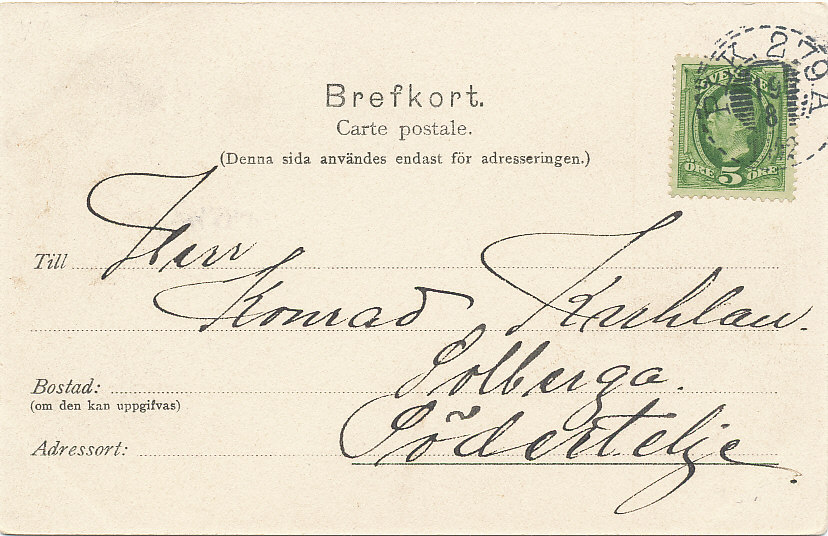 Brefkort.
Carte postale.
(Denna sida användes endast för adresseringen.)
PK. 279 A
SVERIGE
8
ÖRE 5 ÖRE
Till Herr
Konrad Kuhlau.
Bostad: Solberga.
(om den kan uppgifvas)
Adressort: Södertelje.